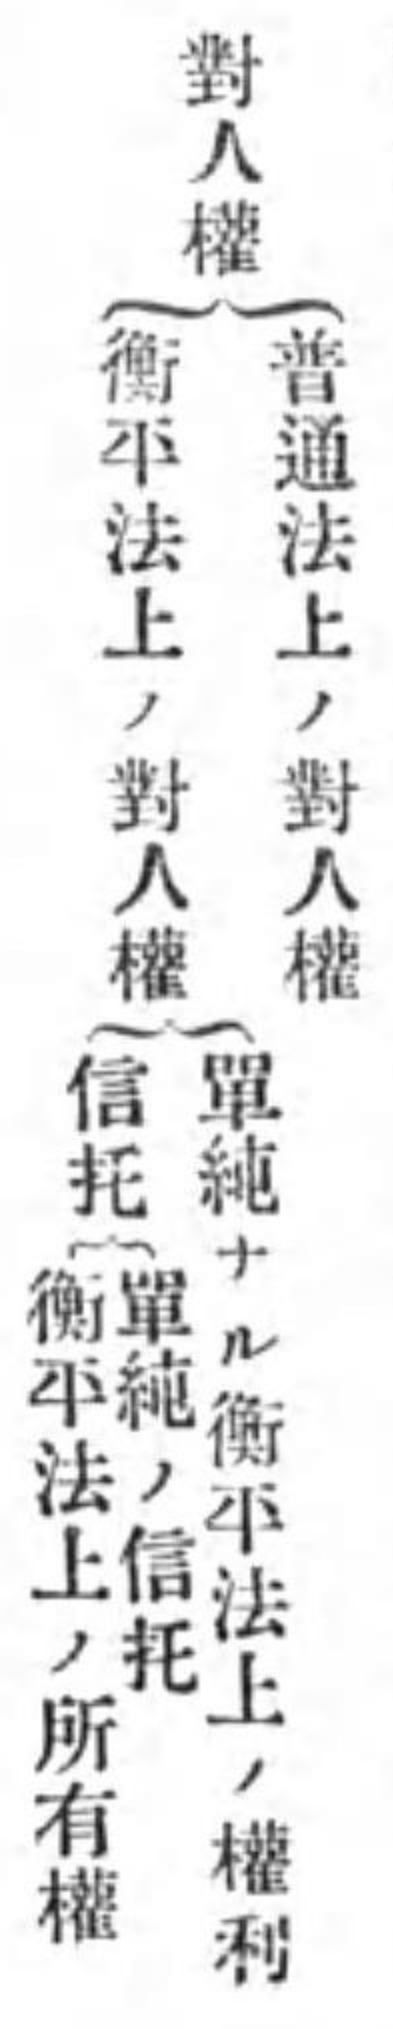 對人權
普通法上ノ對人權
衡平法上ノ對人權
單純ナル衡平法上ノ權利
信托
單純ノ信托
衡平法上ノ所有權